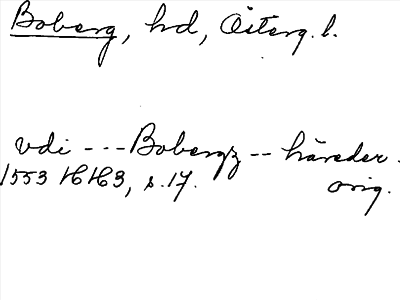 Boberg, hd, Österg. l.
vdi --- Bobergz -- häreder.
1553 HH3, s. 17. orig.